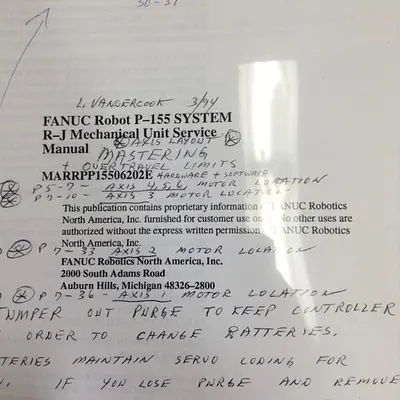 30-31
L. VANDERCOOK 3/94
FANUC Robot P–155 SYSTEM
R–J Mechanical Unit Service
Manual
AXIS LAYOUT
MASTERING
+ OVERTRAVEL LIMITS
MARRPP15506202E HARDWARE + SOFTWARE
P 5-7- AXIS 4,5,6, MOTOR LOCATION
P 7-10- AXIS 3 MOTOR LOCATION
This publication contains proprietary information of FANUC Robotics
North America, Inc. furnished for customer use only. No other uses are
authorized without the express written permission of FANUC Robotics
North America, Inc.
P 7-33 AXIS 2 MOTOR LOCATION
FANUC Robotics North America, Inc.
2000 South Adams Road
Auburn Hills, Michigan 48326–2800
P 7-36- AXIS 1 MOTOR LOCATION
JUMPER OUT PURGE TO KEEP CONTROLLER
ORDER TO CHANGE BATTERIES.
TERIES MAINTAIN SERVO CODING FOR
IF YOU LOSE PURGE AND REMOVE